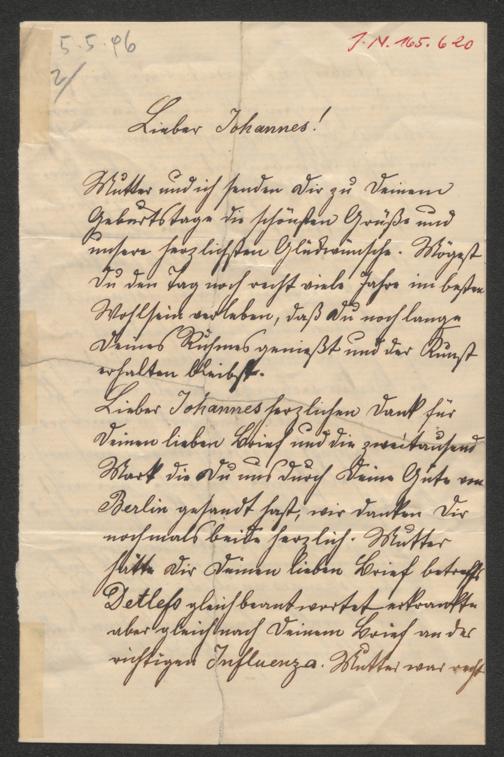 5.5.96
2/
J.N. 165.620
Lieber Johannes!
Mutter und ich senden Dir zu Deinem
Geburtstage die schönsten Grüße und
unsere herzlichsten Glückwünsche. Mögest
Du den Tag noch recht viele Jahre im besten
Wohlsein verleben, daß Du noch lange
Deines Ruhmes genießt und der Kunst
erhalten bleibst.
Lieber Johannes herzlichen Dank für
Deinen lieben Brief und die zweitausend
Mark die Du uns durch Deine Güte von
Berlin gesandt hast, wir danken Dir
nochmals beide herzlich. Mutter
hätte Dir Deinen lieben Brief betreffs
Detlefs gleich beantwortet erkrankte
aber gleich nach Deinem Brief an der
richtigen Influenza. Mutter war recht